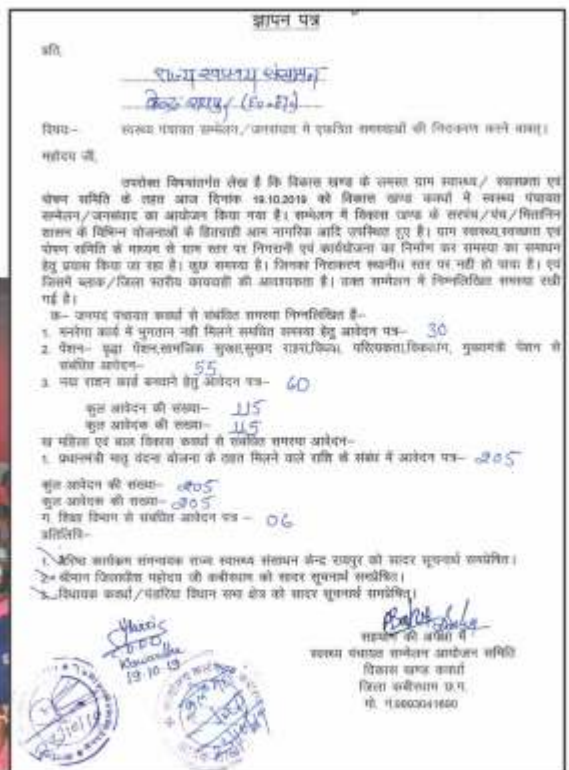 ज्ञापन पत्र
प्रति,
राज्य स्वास्थ्य संसाधन
केन्द्र रायपुर (छ०ग०)
विषय:- स्वस्थ पंचायत सम्मेलन/जनसंवाद में एकत्रित समस्याओं की निराकरण करने बाबत्।
महोदय जी,
उपरोक्त विषयांतर्गत लेख है कि विकास खण्ड के समस्त ग्राम स्वास्थ्य/ स्वच्छता एवं
पोषण समिति के तहत आज दिनांक 19.10.2019 को विकास खण्ड कवर्धा में स्वस्थ पंचायत
सम्मेलन/जनसंवाद का आयोजन किया गया है। सम्मेलन में विकास खण्ड के सरपंच/पंच/मितानिन
शासन के विभिन्न योजनाओं के हितग्राही आम नागरिक आदि उपस्थित हुए है। ग्राम स्वास्थ्य,स्वच्छता एवं
पोषण समिति के माध्यम से ग्राम स्तर पर निगरानी एवं कार्ययोजना का निर्माण कर समस्या का समाधान
हेतु प्रयास किया जा रहा है। कुछ समस्या है। जिनका निराकरण स्थानीय स्तर पर नही हो पाया है। एवं
जिसमें ब्लाक/जिला स्तरीय कार्यवाही की आवश्यकता है। उक्त सम्मेलन में निम्नलिखित समस्या रखी
गई है।
क– जनपद पंचायत कवर्धा से संबंधित समस्या निम्नलिखित है–
1. मनरेगा कार्य में भुगतान नही मिलने संबंधित समस्या हेतु आवेदन पत्र– 30
2. पेंशन– वृद्धा पेंशन,सामाजिक सुरक्षा,सुखद सहारा,विधवा, परित्यक्ता,विकलांग, मुख्यमंत्री पेंशन से
संबंधित आवेदन– 55
3. नया राशन कार्ड बनवाने हेतु आवेदन पत्र– 60
कुल आवेदन की संख्या– 115
कुल आवेदक की संख्या– 115
ख महिला एवं बाल विकास कवर्धा से संबंधित समस्या आवेदन–
1. प्रधानमंत्री मातृ वंदना योजना के तहत मिलने वाले राशि के संबंध में आवेदन पत्र– 205
कुल आवेदन की संख्या– 205
कुल आवेदक की संख्या– 205
ग. शिक्षा विभाग से संबंधित आवेदन पत्र – 06
प्रतिलिपि–
1. वरिष्ठ कार्यक्रम समन्वयक राज्य स्वास्थ्य संसाधन केन्द्र रायपुर को सादर सूचनार्थ सम्प्रेषित।
2- श्रीमान जिलाधीश महोदय जी कबीरधाम को सादर सूचनार्थ सम्प्रेषित।
3. विधायक कवर्धा/पंडरिया विधान सभा क्षेत्र को सादर सूचनार्थ सम्प्रेषित।
Kawardha
19-10-19
सहयोग की अपेक्षा में
स्वस्थ पंचायत सम्मेलन आयोजन समिति
विकास खण्ड कवर्धा
जिला कबीरधाम छ.ग.